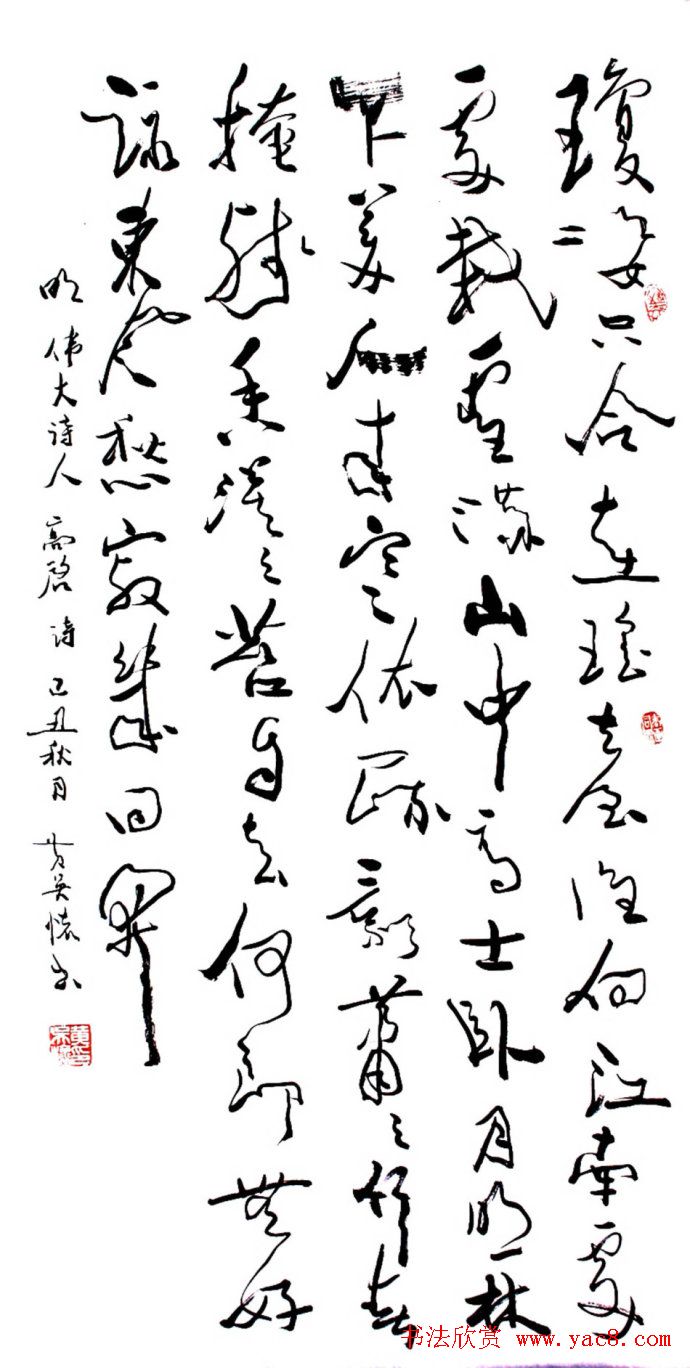 瓊姿只合在瑤臺誰向江南處
處栽雪滿山中高士卧月明林
下美人来寒依疏影蕭々竹春
掩殘香漠々苔自去何郎無好
詠東風愁寂幾回開
明 伟大诗人 高启 诗 己丑秋月 黄吴怀书
书法欣赏 www.yac8.com